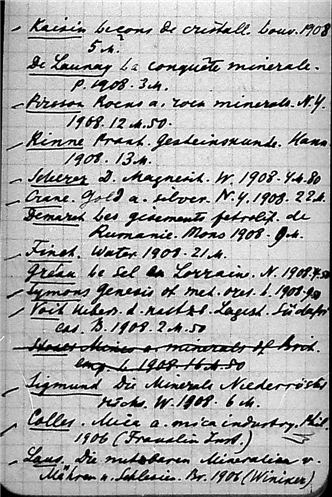 Kaisin Leçons de cristall. Louv. 1908
5 M.
De Launay La conquête minerale.
P. 1908. 3 M.
Pirsson Rocks a. rock minerals. N.Y.
1908. 12 M. 50.
Rinne Prakt. Gesteinskunde. Hann.
1908. 13 M.
Scherer D. Magnesit. W. 1908. 4 M 80
Crane. Gold a. silver. N.Y. 1908. 22 M.
Demaret Les gisements petrolif. de
Rumanie. Mons 1908. 9 M.
Finet. Water. 1908. 21 M.
Gréau Le Sel en Lorrain. N. 1908.
Symons Genesis of met. ores. L. 1908.
Voit Uebers. d. nutzb. Lagest. Südafri
cas. B. 1908. 2 M. 50
Mines a. minerals of Brit.
emp. L 1908. 16 M. 80
Sigmund Die Minerals Niederröster
W. 1908. 6 M.
Colles. Mica a. mica industry. Phil.
1906 (Franclin Inst.)
Laus. Die nutzbaren Mineralien v.
Mähren u. Schlesien. Br. 1906 (Winiker)